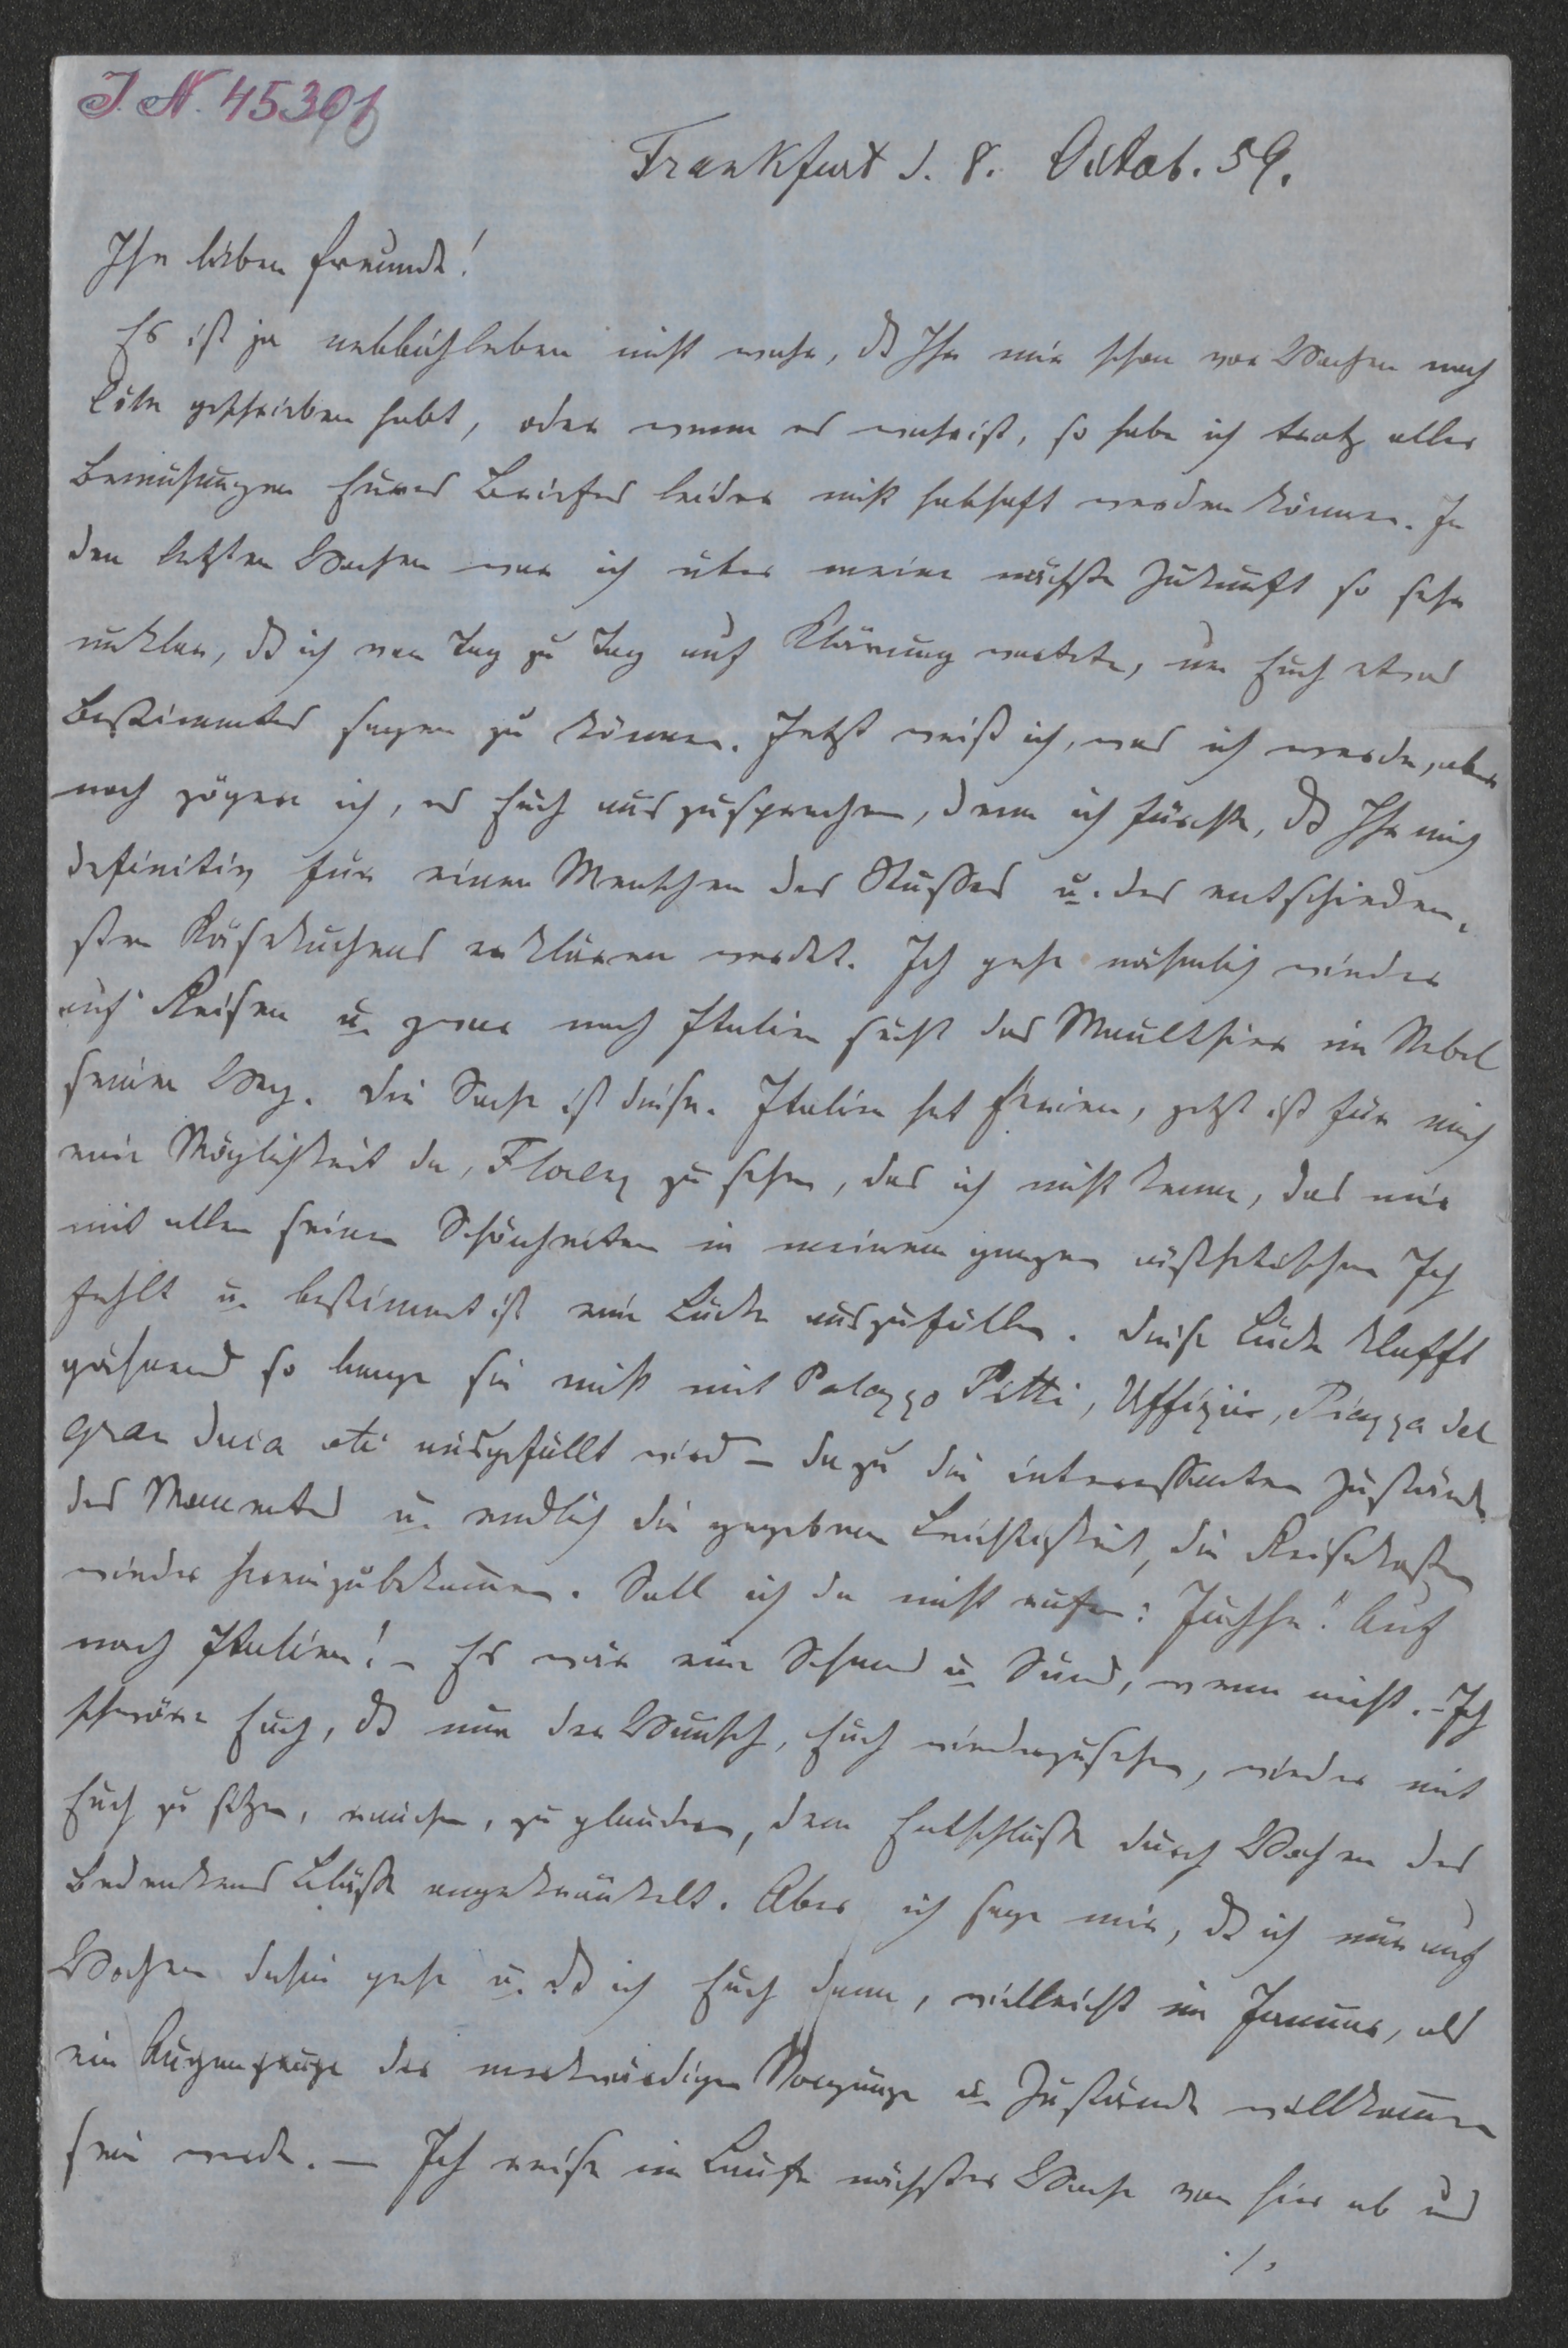 I. N. 45301
Frankfurt d. 8. Octob. 59.
Ihr lieben Freunde!
Es ist ja nebbichleben nicht wahr, dß Ihr mir schon vor Wochen nach
Cöln geschrieben habt, oder wenn es wahr ist, so habe ich trotz aller
Bemühungen Eures Briefes leider nicht habhaft werden können. In
den letzten Wochen war ich über meine nächste Zukunft so sehr
unklar, dß ich von Tag zu Tag auf Klärung wartete, um Euch etwas
Bestimmtes sagen zu können. Jetzt weiß ich, was ich werde, aber
noch zögere ich, es Euch auszusprechen, denn ich fürchte, dß Ihr mich
definitiv für einen Menschen des Stusses u. des entschieden,
sten Käsekuchens erklären werdet. Ich gehe nähmlich wieder
auf Reisen u. zwar nach Italien sucht das Maulthier im Nebel
seinen Weg. Die Sache ist diese. Italien hat Ferien, jetzt ist für mich
eine Möglichkeit da, Florenz zu sehen, das ich nicht kenne, das mir
mit allen seinen Schönheiten in meinem ganzen ästhetischen Ich
fehlt u. bestimmt ist eine Lücke auszufüllen. Diese Lücke klafft
gähnend so lange sie nicht mit Palazzo Pitti, Uffizii, Piazza del
gran duca etc ausgefüllt wird – dazu die interessanten Zustände
des Momentes u. endlich die gegebene Leichtigkeit, die Reisekosten
wieder hereinzubekommen. Soll ich da nicht rufen: Juchhe! Auf
nach Italien! – Es wär eine Schand u. Sünd, wenn nicht. – Ich
schwöre Euch, dß nur der Wunsch, Euch wiederzusehen, wieder mit
Euch zu sitzen, rauchen, zu plaudern, dem Entschlusse durch Wochen des
Bedenkens Blässe angekränkelt. Aber ich sage mir, dß ich nur auf
Wochen dahin gehe u. dß ich Euch dann, vielleicht im Januar, als
ein Augenzeuge der merkwürdigen Vorgänge u. Zustände willkommen
sein werde. – Ich reise im Laufe nächster Woche von hier ab und
./.